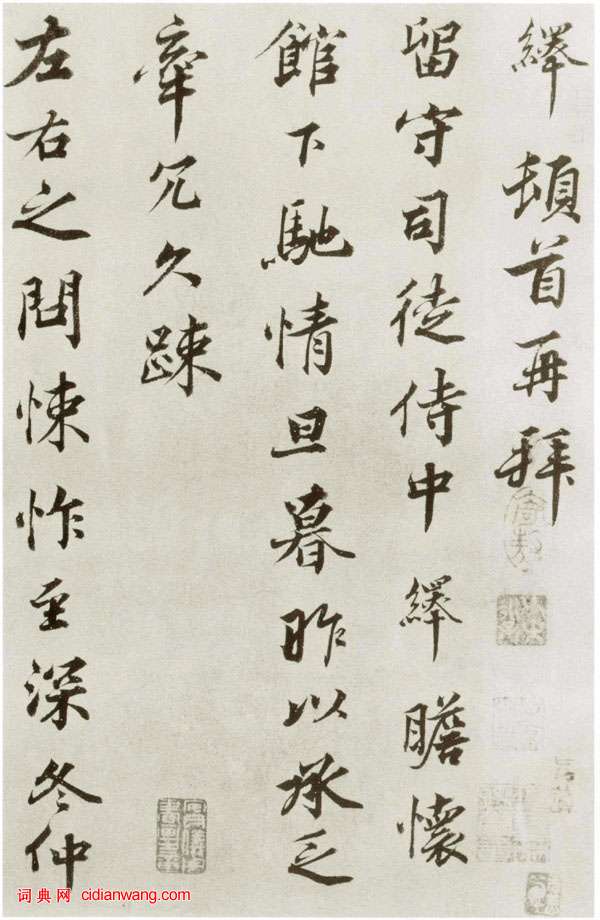 繹頓首再拜
留守司徒侍中繹瞻懷
館下馳情旦暮昨以承乏
牽冗久踈
左右之問悚怍至深冬仲
词典网 cidianwang.com